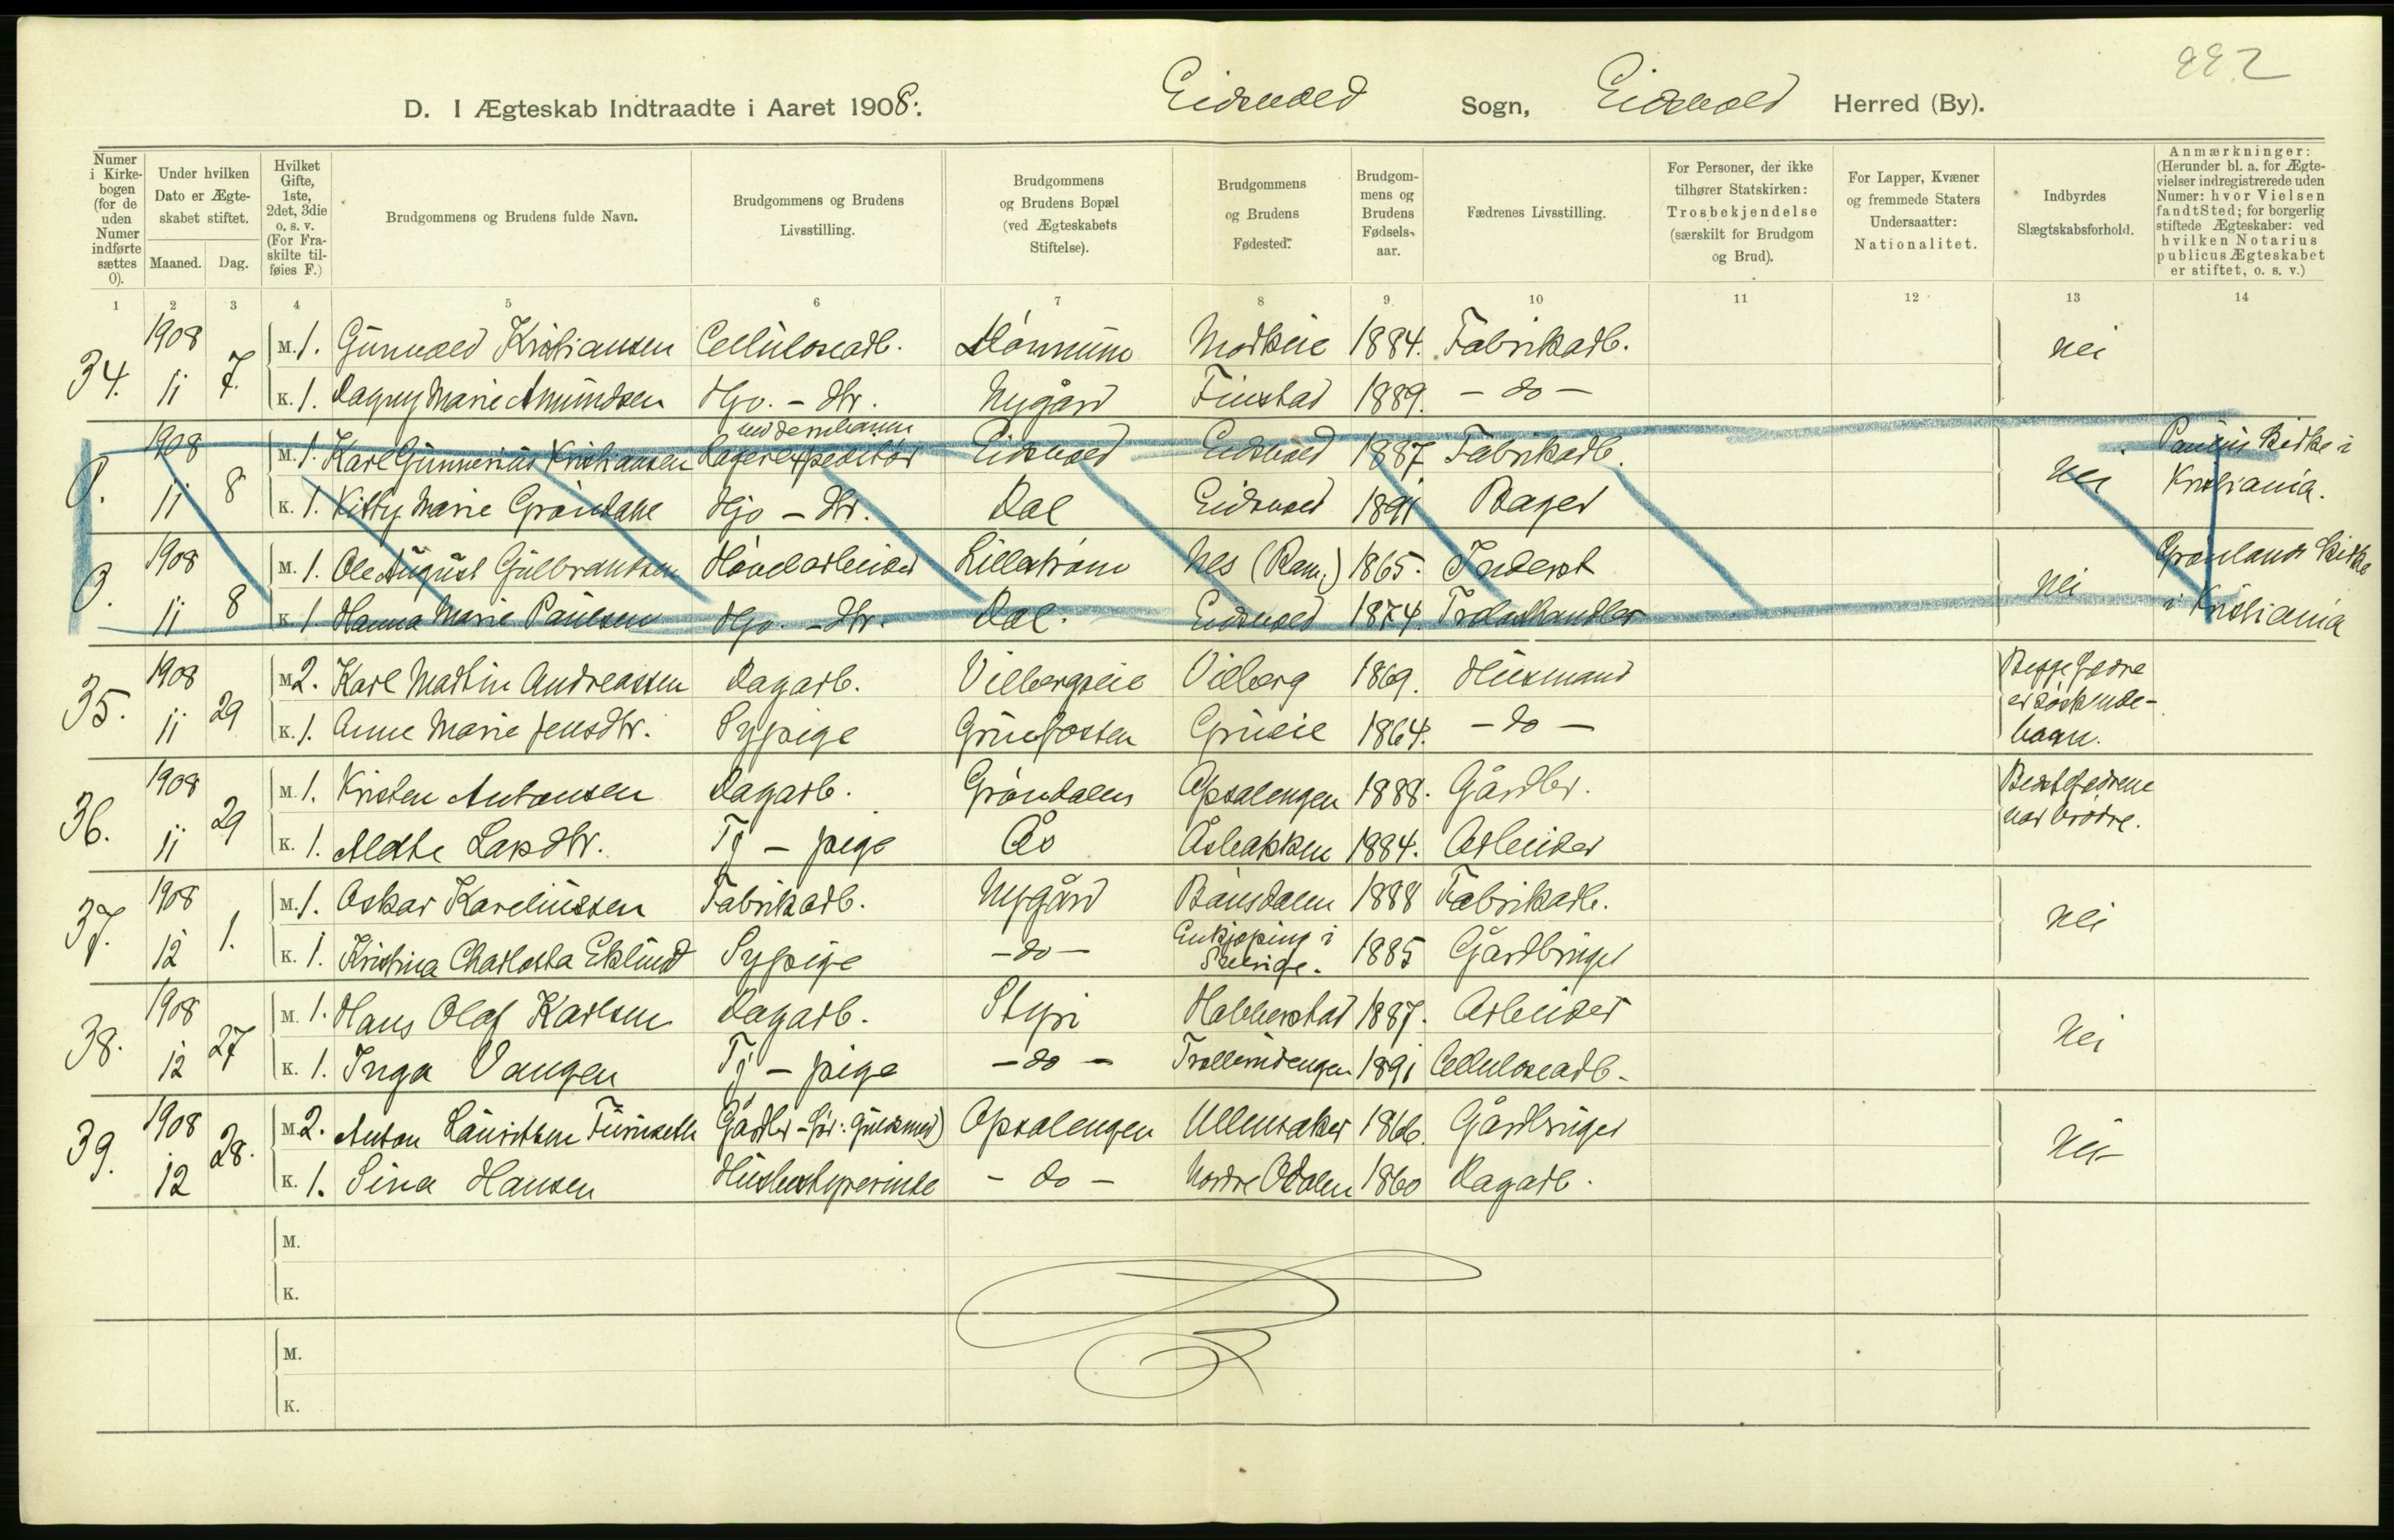 222
D. I Ægteskab Indtraadte i Aaret 1908: Eidsvold Sogn, Eidsvold Herred (By).
Numer i Kirke-bogen (for de uden Numer indførte sættes 0).
Under hvilken Dato er Ægte-skabet stiftet.
Maaned. Dag.
Hvilket Gifte, 1ste, 2det, 3die o. s. v. (For Fra-skilte til-føies F.)
Brudgommens og Brudens fulde Navn.
Brudgommens og Brudens Livsstilling.
Brudgommens og Brudens Bopæl (ved Ægteskabets Stiftelse).
Brudgommens og Brudens Fødested.
Brudgom-mens og Brudens Fødsels-aar.
Fædrenes Livsstilling.
For Personer, der ikke tilhører Statskirken: Trosbekjendelse (særskilt for Brudgom og Brud).
For Lapper, Kvæner og fremmede Staters Undersaatter: Nationalitet.
Indbyrdes Slægtskabsforhold.
Anmærkninger: (Herunder bl. a. for Ægte-vielser indregistrerede uden Numer: hvor Vielsen fandt Sted; for borgerlig stiftede Ægteskaber: ved hvilken Notarius publicus Ægteskabet er stiftet, o. s. v.)
1 2 3 4 5 6 7 8 9 10 11 12 13 14
34. 1908 11 7. M. 1. Gunvald Kristiansen Celluloseadb. Mørkeie 1884. Fabrikadb. nei
K. 1. Dagny Marie Amundsen Hjo. - dtr. Nygård Finstad 1889. - do -
0. 1908 11 8 M. 1. Karl Gunnerius Kristiansen Lagerexpeditør Eidsvold Eidsvold 1887 Fabrikadb. nei Paulus Kirke i
K. 1. Kitty Marie Grøndahl Hjo - dtr. Dal Eidsvold 1891 Bager Kristiania.
0. 1908 11 8 M. 1. Ole August Gulbrandsen Høvelarbeider Lillestrøm Nes (Rom.) 1865. Inderst nei Grønlands Kirke
K. 1 Hanna Marie Paulsen Hjo. - dtr. Dal. Eidsvold 1874. Trælasthandler i Kristiania
35. 1908 11 29 M. 2. Karl Martin Andreassen Dagarb. Vilbergseie Vilberg 1869. Husmand Begge Fedre
er søskende-
K. 1. Anne Marie Jensdtr. Sypige Gruefossen Grueie 1864. - do - barn.
36. 1908 11 29 M. 1. Kristen Antonsen Dagarb. Grøndalen Opsalengen 1888. Gårdbr. Bestefedrene
var brødre.
K. 1. Marthe Larsdtr. Tj - pige Ås Åsbakken 1884. Arbeider
37. 1908 12 1. M. 1. Oskar Kareliussen Fabrikadb. Nygård Bånsdalen 1888 Fabrikadb. nei
K. 1. Kristina Charlotta Eklund Sypige - do - Enkjøping i Sverige. 1885 Gårdbruger
38. 1908 12 27 M. 1. Hans Olaf Karlsen Dagarb. Styri Habberstad 1887. Arbeider nei
K. 1. Inga Vangen Tj - pige - do - 1891 Celluloseadb.
39. 1908 12 28. M. 2. Anton Lauritsen Furuseth Gårdbr - før: Guldsmed) Opsalengen Ullensaker 1866. Gårdbruger nei
K. 1. Sina Hansen Husbestyrerinde - do - Nordre Odalen 1860 Dagarb.
M.
K.
M.
K.